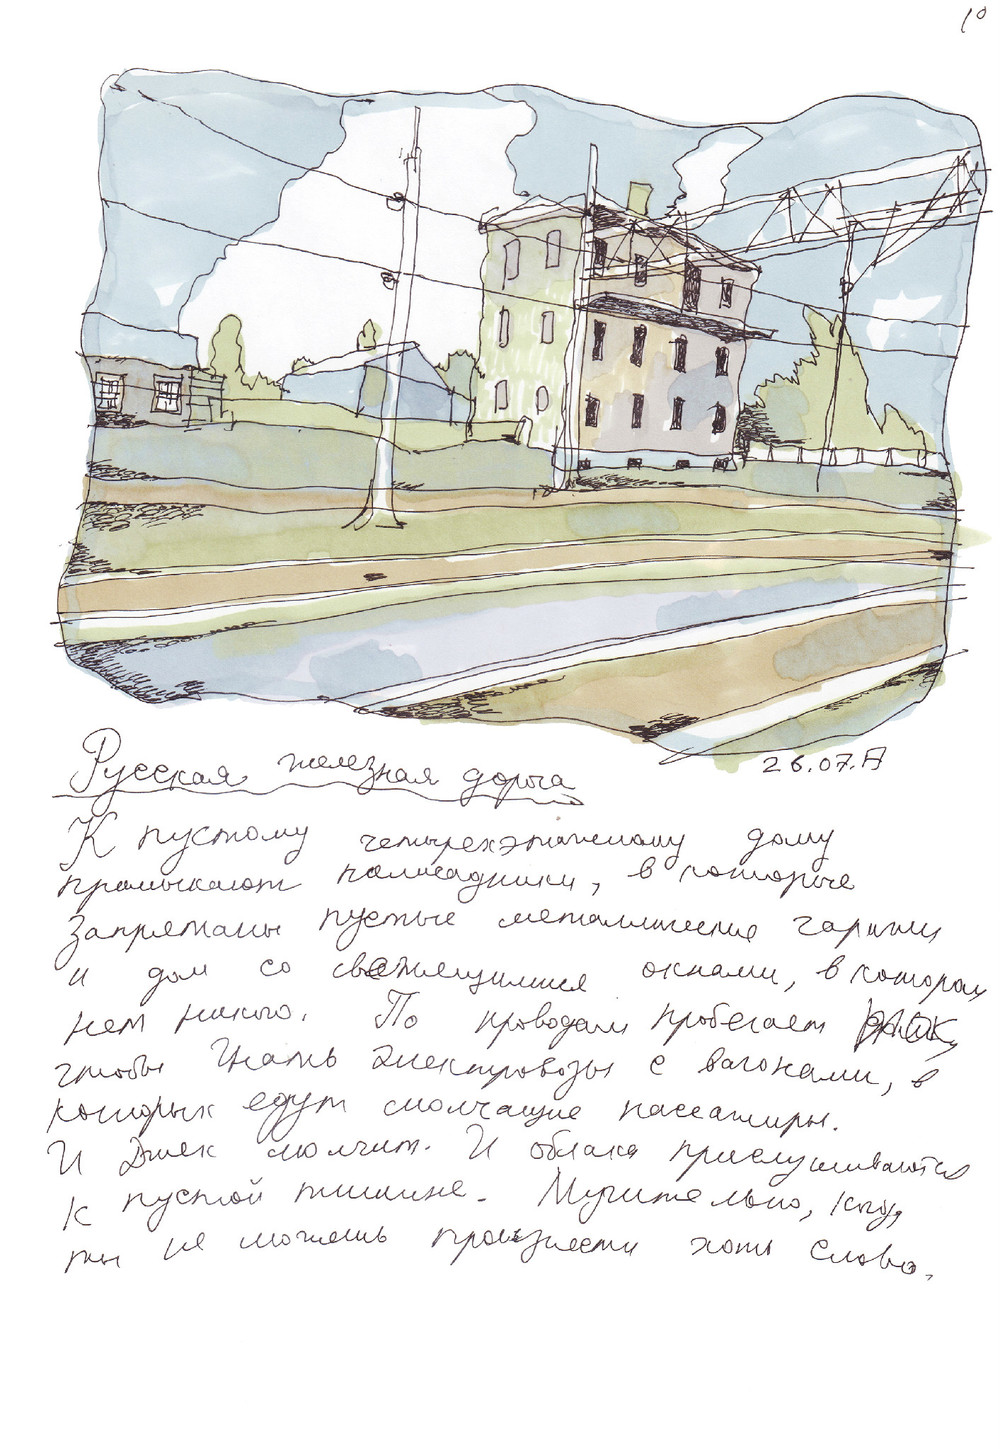 10
26.07.А
Русская железная дорога
К пустому четырехэтажному дому
примыкают палисадники, в которые
запрятаны пустые металлические гаражи
и дом со светящимися окнами, в котором
нет никого. По проводам пробегает ток,
чтобы гнать электровозы с вагонами, в
которых едут молчащие пассажиры.
И Джек молчит. И облака прислушиваются
к пустой тишине. Мучительно, когда
ты не можешь произнести хоть слово.